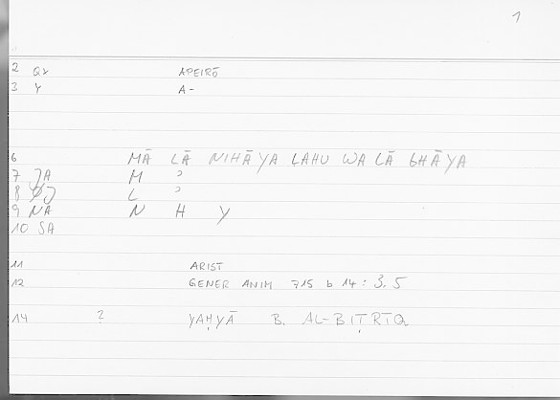 1
2 Qv APEIRŌ
3 Y A-
6 MĀ LĀ NIHĀYA LAHU WA LĀ GHĀYA
7 JA M ɔ
8 L ɔ
9 NA N H Y
10 SA
11 ARIST
12 GENER ANIM 715 b 14 : 3.5
14 ? YAḤYĀ B. AL-BIṬRĪQ